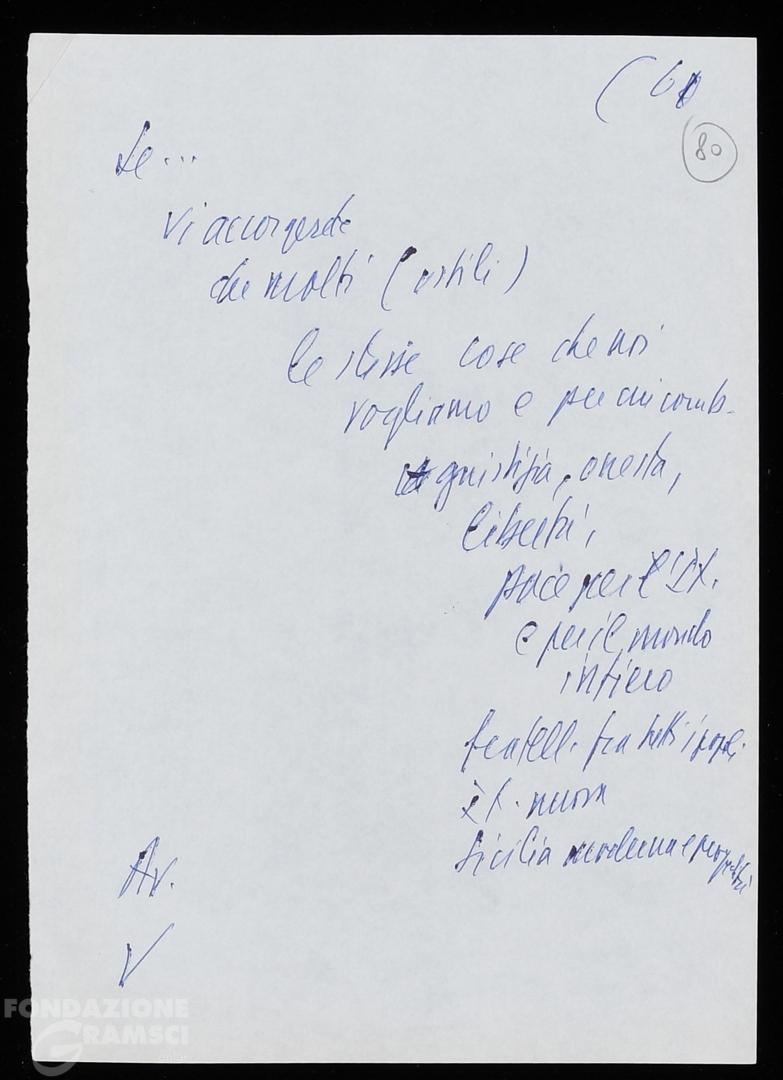 (6
80
Se...
vi accorgerete
che molti (ostili)
le stesse cose che noi
vogliamo e per cui comb.
giustizia, onestà,
libertà,
pace per l'It.
e per il mondo
intiero
fratell. fra tutti i pop.
It. nuova
Sicilia moderna e
Av.
V
FONDAZIONE
GRAMSCI